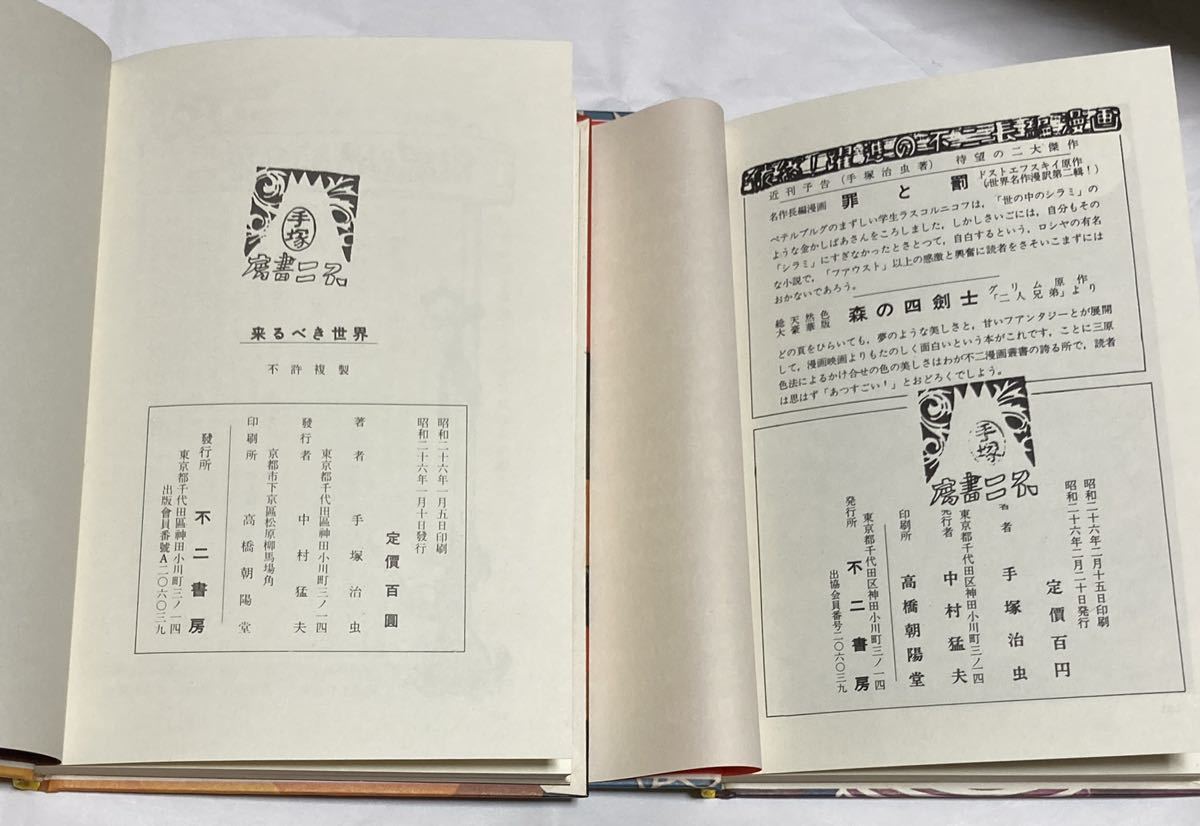 手塚
不二書房
来るべき世界
不許複製
昭和二十六年一月五日印刷
昭和二十六年一月十日發行
定價百圓
著者 手塚治虫
東京都千代田區神田小川町三ノ一四
發行者 中村猛夫
京都市下京區松原柳馬場角
印刷所 高橋朝陽堂
發行所 不二書房
東京都千代田區神田小川町三ノ一四
出版會員番號A二〇六〇三九
近刊予告(手塚治虫著) 待望の二大傑作
名作長編漫画 罪と罰 ドストエフスキイ原作
(世界名作漫訳第二輯!)
ペテルブルグのまずしい学生ラスコルニコフは,「世の中のシラミ」の
ような金かしばあさんをころしました,しかしさいごには,自分もその
「シラミ」にすぎなかったとさとつて,自白するという,ロシヤの有名
な小説で,「ファウスト」以上の感激と興奮に読者をさそいこまずには
おかないであろう。
総天然色
大豪華版 森の四剣士 グリム原作
「二人兄弟」より
どの頁をひらいても,夢のような美しさと,甘いフアンタジーとが展開
して,漫画映画よりもたのしく面白いという本がこれです,ことに三原
色法によるかけ合せの色の美しさはわが不二漫画叢書の誇る所で,読者
は思はず「あつすごい!」とおどろくでしよう。
手塚
不二書房
昭和二十六年二月十五日印刷
昭和二十六年二月二十日発行
定價百円
著者 手塚治虫
東京都千代田区神田小川町三ノ一四
発行者 中村猛夫
印刷所 高橋朝陽堂
東京都千代田区神田小川町三ノ一四
発行所 不二書房
出協会員番号二〇六〇三九